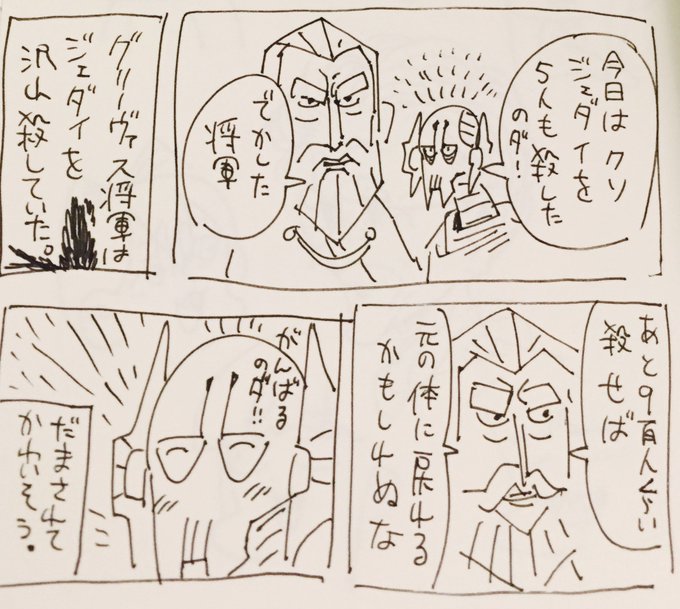 今日は クソ
ジェダイを
5人も殺した
のダ!
でかした
将軍
グリーヴァス将軍は
ジェダイを
沢山殺していた。
あと9百人ぐらい
殺せば
元の体に戻れる
かもしれぬな
がんばる
のダ!!
だまされて
かわいそう。